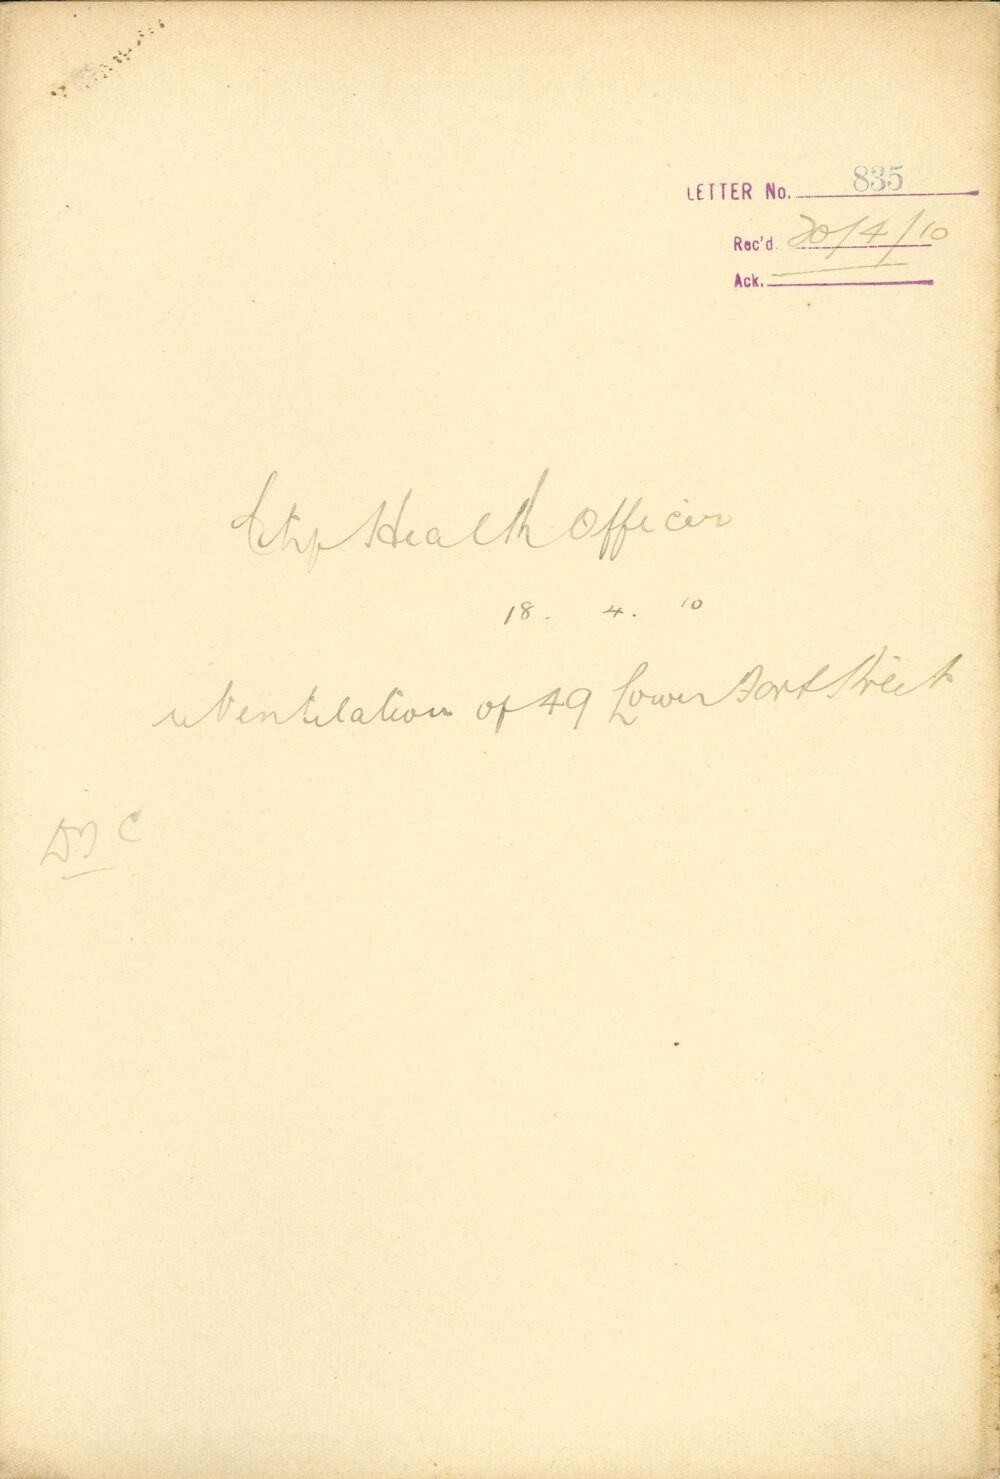 LETTER No. 835
Rec'd 20/4/10
Ack.
City Health Officer
18. 4. 10
re Ventilation of 49 Lower Fort Street